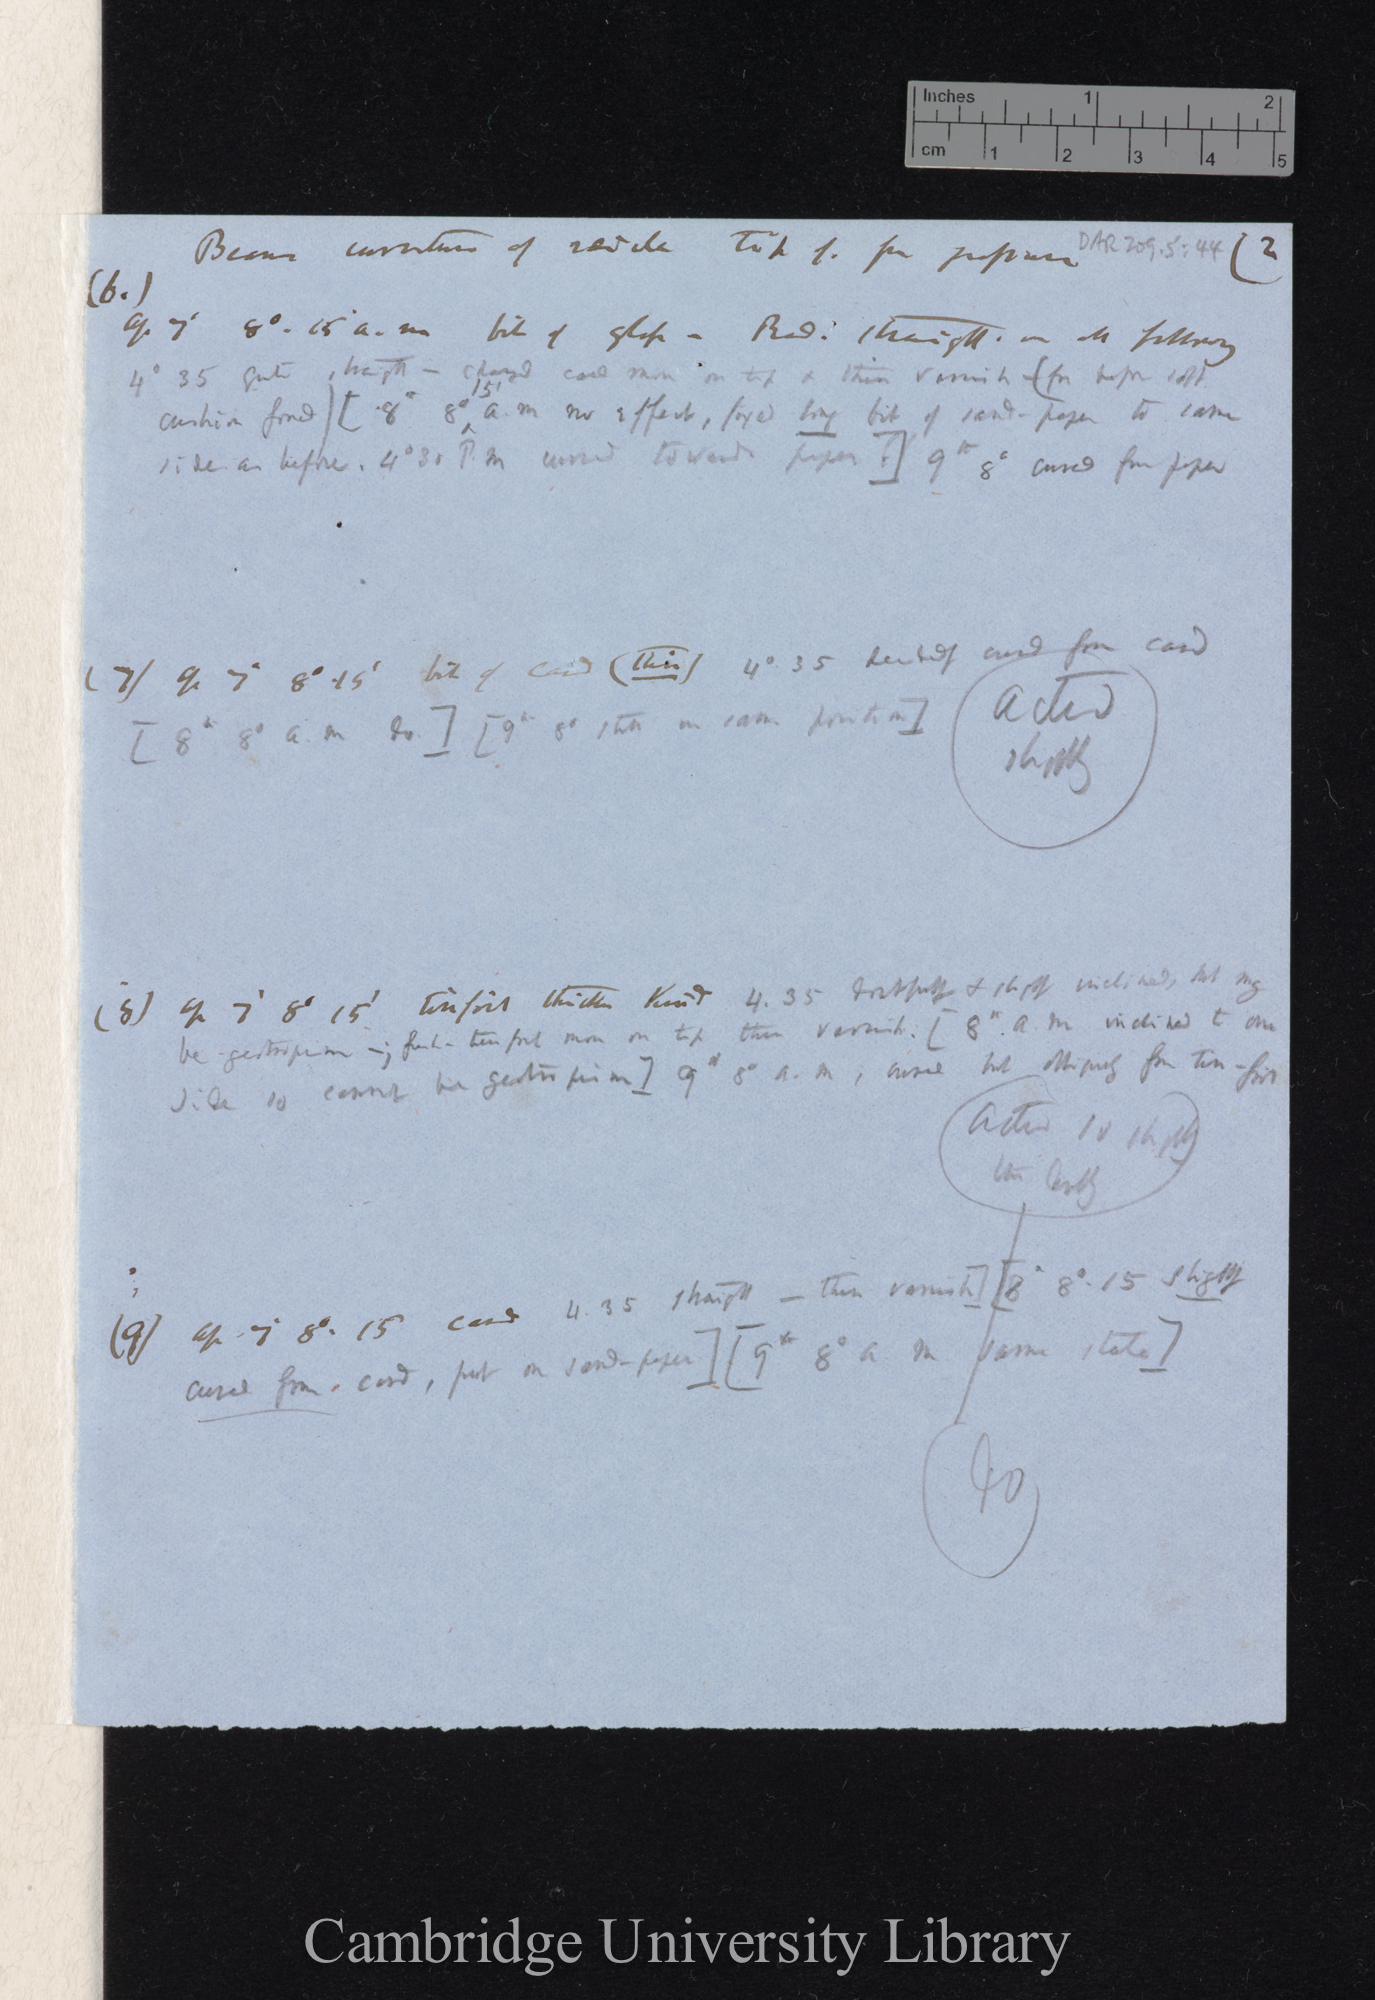 Inches 1 2
cm 1 2 3 4 5
Beans curvature of radicle tip of. from pressure DAR 209.5:44 (2
(6.)
Ap 7' 8°. 15' a.m bit of glass – Rad: straight. in all following
4° 35 quite straight – placed card more on tip & thin varnish – (for before soft
cushion found) [ 8th 8° 15' a.m no effect, fixed long bit of sand-paper to same
side as before. 4°30 P.m curved towards paper ?] 9th 8° curved from paper
(7) Ap 7' 8°.15' bit of card (thin) 4°.35 decidedly curved from card
[ 8th 8° a.m do.] [9th 8° still in same position]
acted
slightly
(8) Ap 7' 8° 15' tinfoil thicker kind 4.35 doubtfully & slightly inclined, but may
be geotropism –; tinfoil more on tip thin varnish. [ 8th. a.m inclined to one
side so cannot be geotropism] 9th 8° a.m, curved but obliquely from tin-foil
acted so slightly
(9) Ap. 7' 8°. 15 card 4.35 straight – thin varnish] [8th 8°.15 slightly
curved from card, put on sand-paper] [9th 8° a m same state]
do
Cambridge University Library